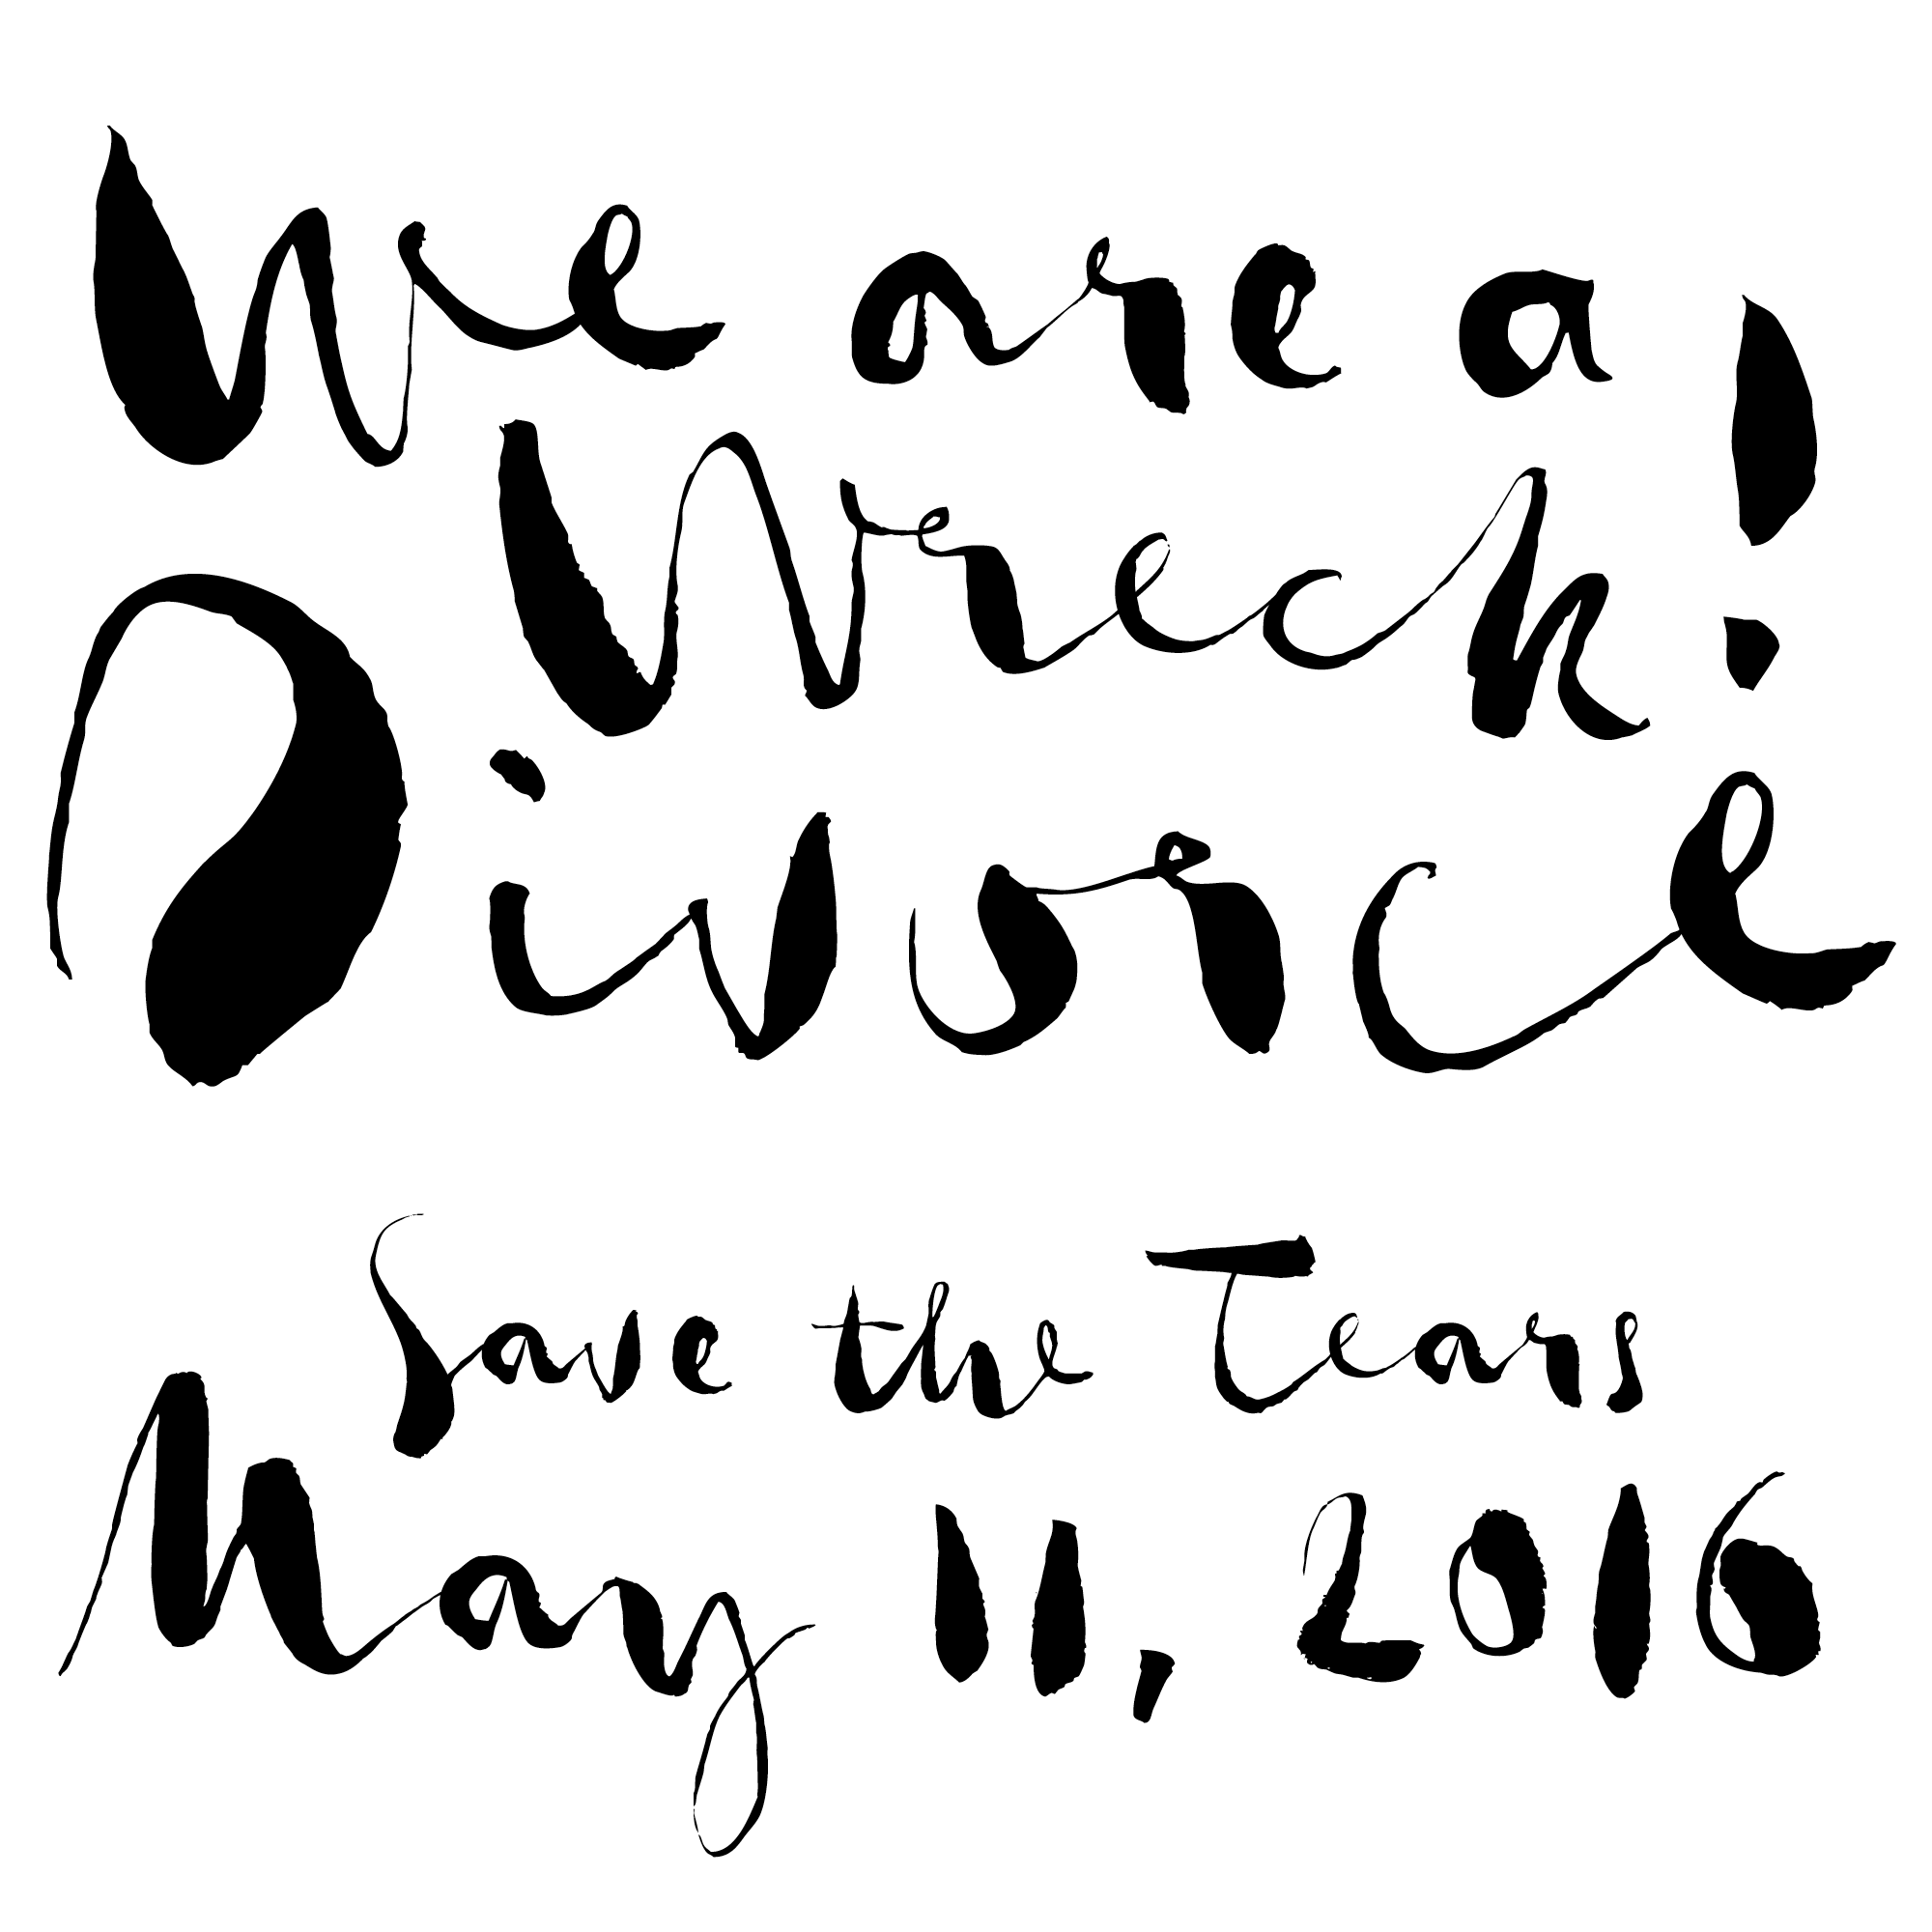 We are a
Wreck!
Divorce
Save the Tears
May 11, 2016